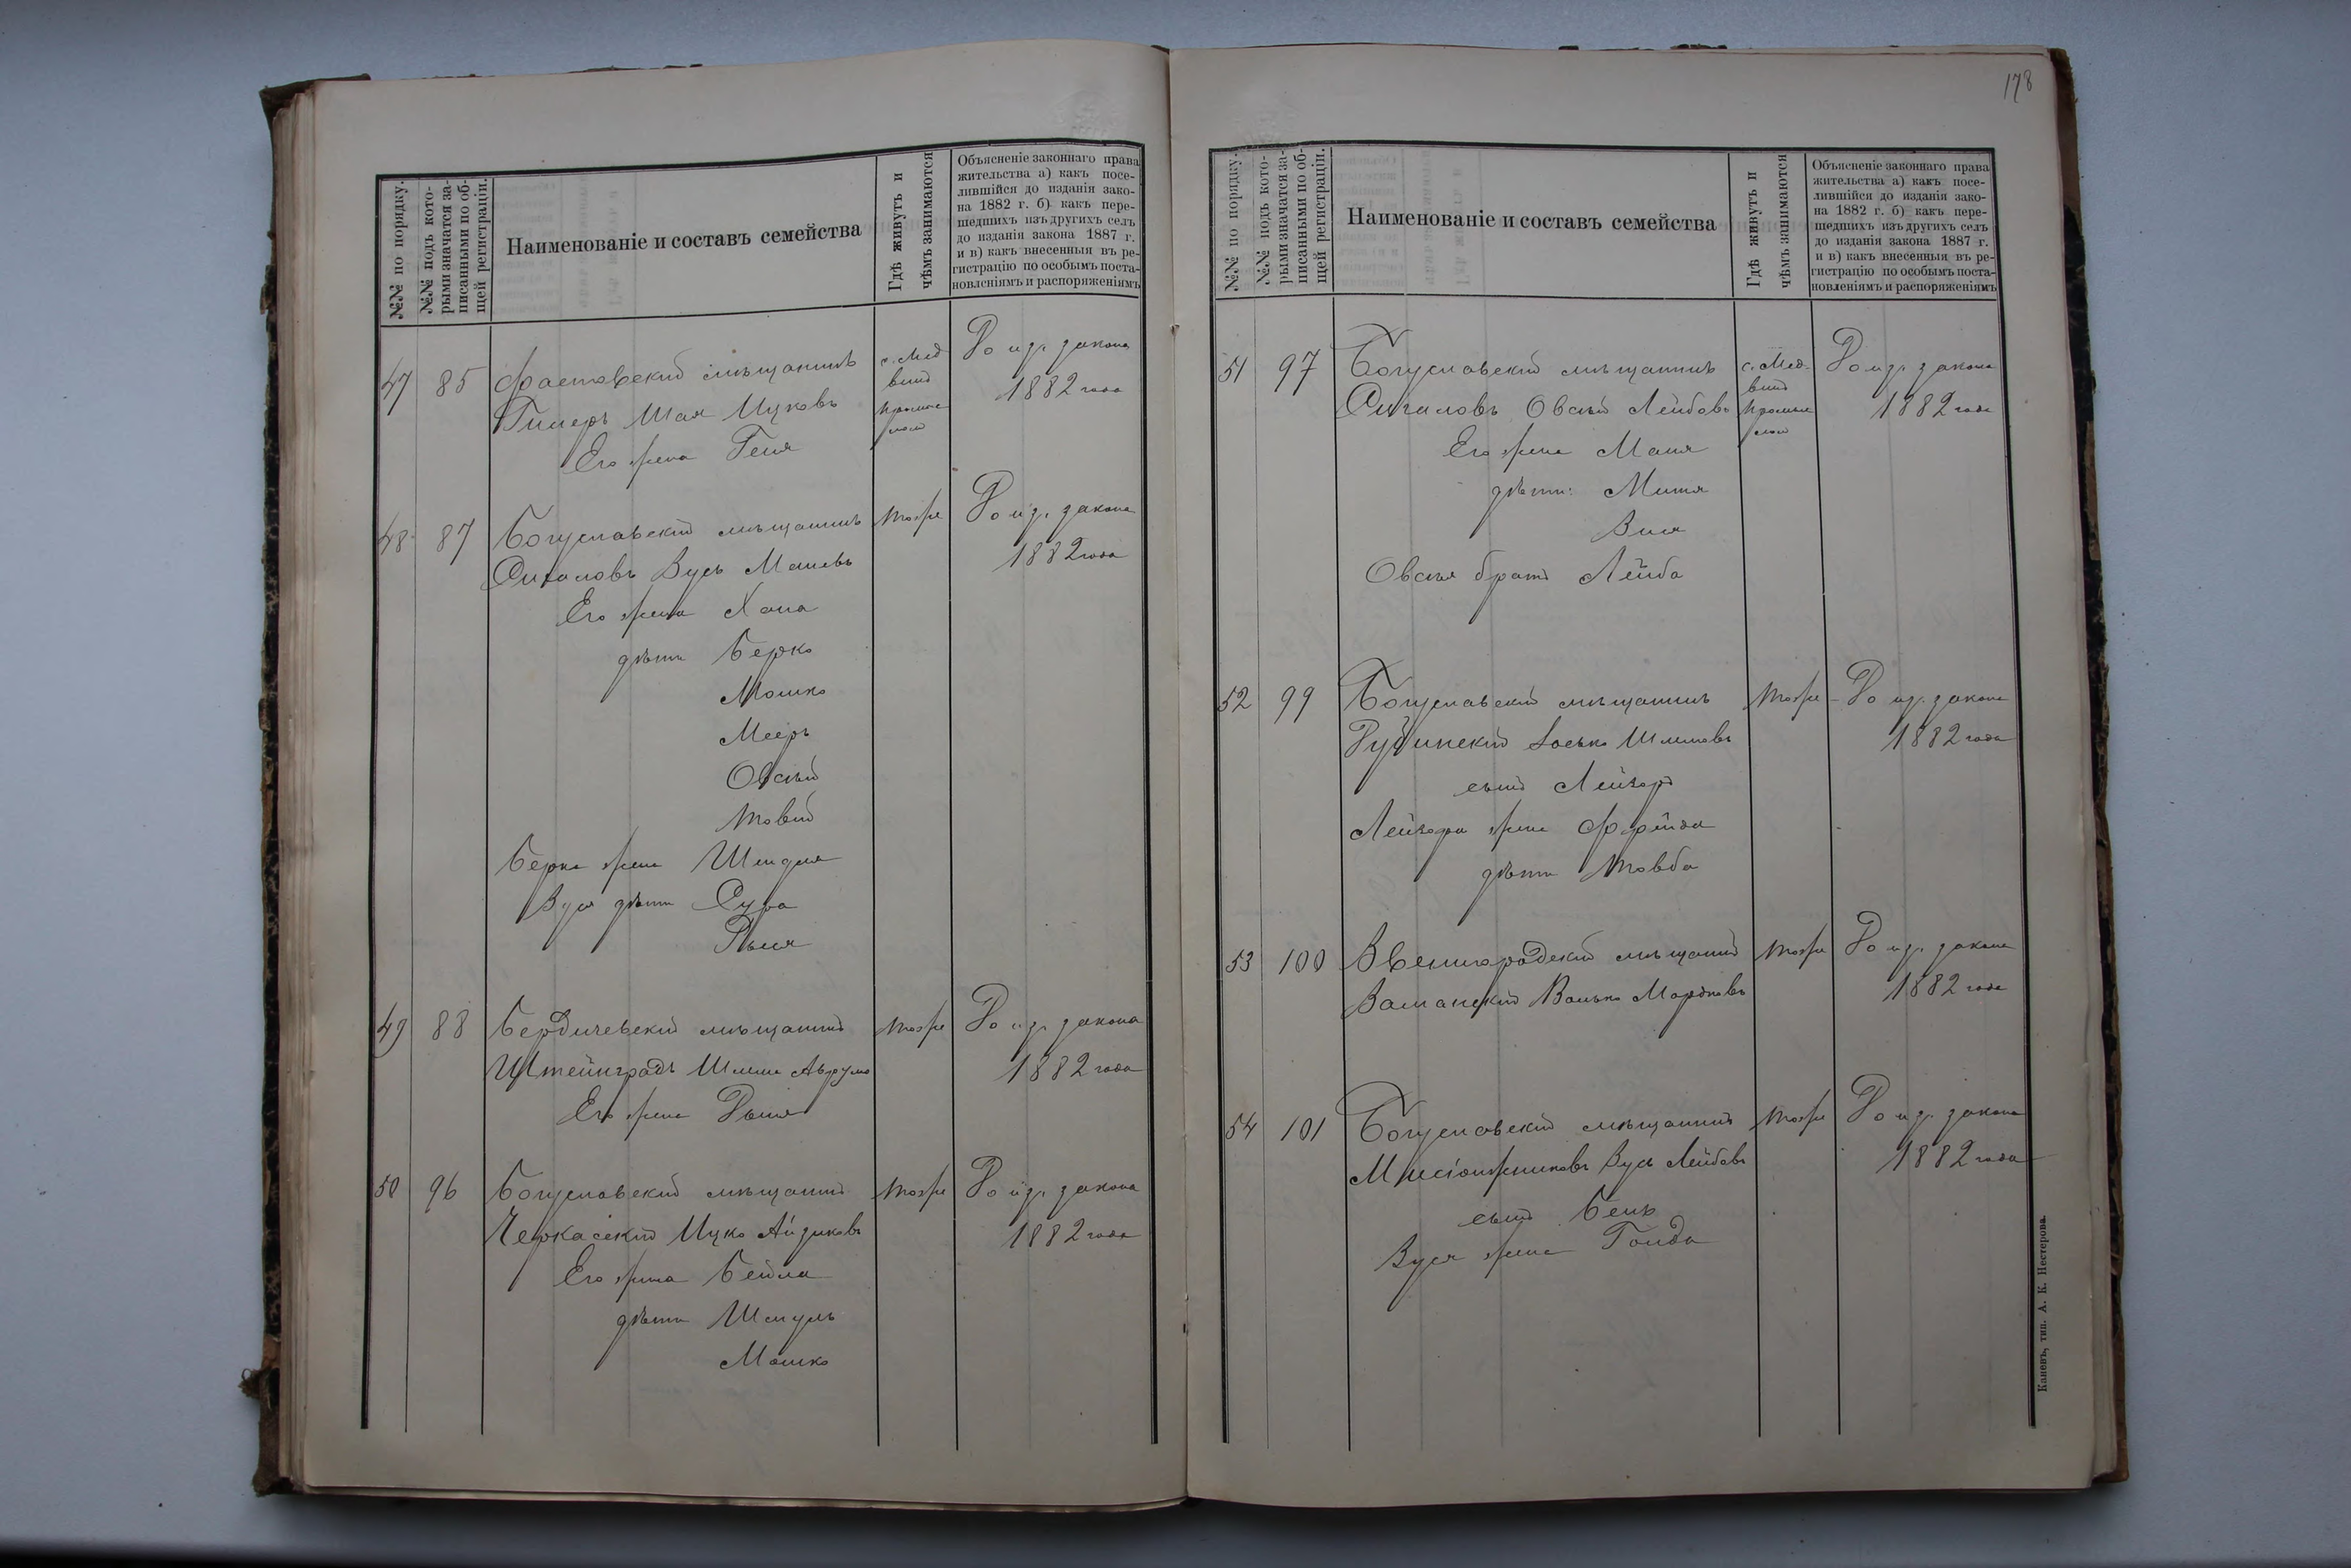 178
№№ по порядку.
№№ подъ кото-
рыми значатся за-
писанными по об-
щей регистраціи.
Наименованіе и составъ семейства
Гдѣ живутъ и
чѣмъ занимаются
Объясненіе законнаго права
жительства а) какъ посе-
лившійся до изданія зако-
на 1882 г. б) какъ пере-
шедшихъ изъ другихъ селъ
до изданія закона 1887 г.
и в) какъ внесенныя въ ре-
гистрацію по особымъ поста-
новленіямъ и распоряженіямъ
47 85 Фастовскій мѣщанинъ с. Мед До изд. закона
винъ 1882 года
Шая Ицковъ
Его жена Геня
48 87 Богуславскій мѣщанинъ тоже До изд. закона
Сигаловъ Вусь 1882 года
Его жена Хана
дѣти Берко
Мошко
Мееръ
Овсѣй
Товій
Берка жена Шендля
Вуся дѣти Сура
49 88 Бердичевскій мѣщанинъ тоже До изд. закона
Штейнградъ 1882 года
Его жена
50 96 Богуславскій мѣщанинъ тоже До изд. закона
Черкасскій Ицко Айзиковъ 1882 года
Его жена Бейла
дѣти Шмуль
Мошко
№№ по порядку.
№№ подъ кото-
рыми значатся за-
писанными по об-
щей регистраціи.
Наименованіе и составъ семейства
Гдѣ живутъ и
чѣмъ занимаются
Объясненіе законнаго права
жительства а) какъ посе-
лившійся до изданія зако-
на 1882 г. б) какъ пере-
шедшихъ изъ другихъ селъ
до изданія закона 1887 г.
и в) какъ внесенныя въ ре-
гистрацію по особымъ поста-
новленіямъ и распоряженіямъ
51 97 Богуславскій мѣщанинъ с. Мед- До изд. закона
винъ
Сигаловъ Овсѣй Лейбовъ 1882 года
Его жена Маня
дѣти:
Овсѣя братъ Лейба
52 99 Богуславскій мѣщанинъ тоже До изд. закона
Іосько Шлиомовъ 1882 года
сынъ Лейзоръ
Лейзора жена Фрейда
дѣти Товба
53 100 Звенигородскій мѣщанинъ тоже До изд. закона
Мордковъ 1882 года
54 101 Богуславскій мѣщанинъ тоже До изд. закона
Вусь Лейбовъ 1882 года
сынъ
Вуся жена
Каневъ, тип. А. К. Нестерова.